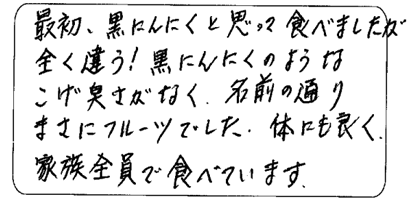 最初、黒にんにくと思って食べましたが
全く違う!黒にんにくのような
こげ臭さがなく、名前の通り
まさにフルーツでした。体にも良く、
家族全員で食べています。